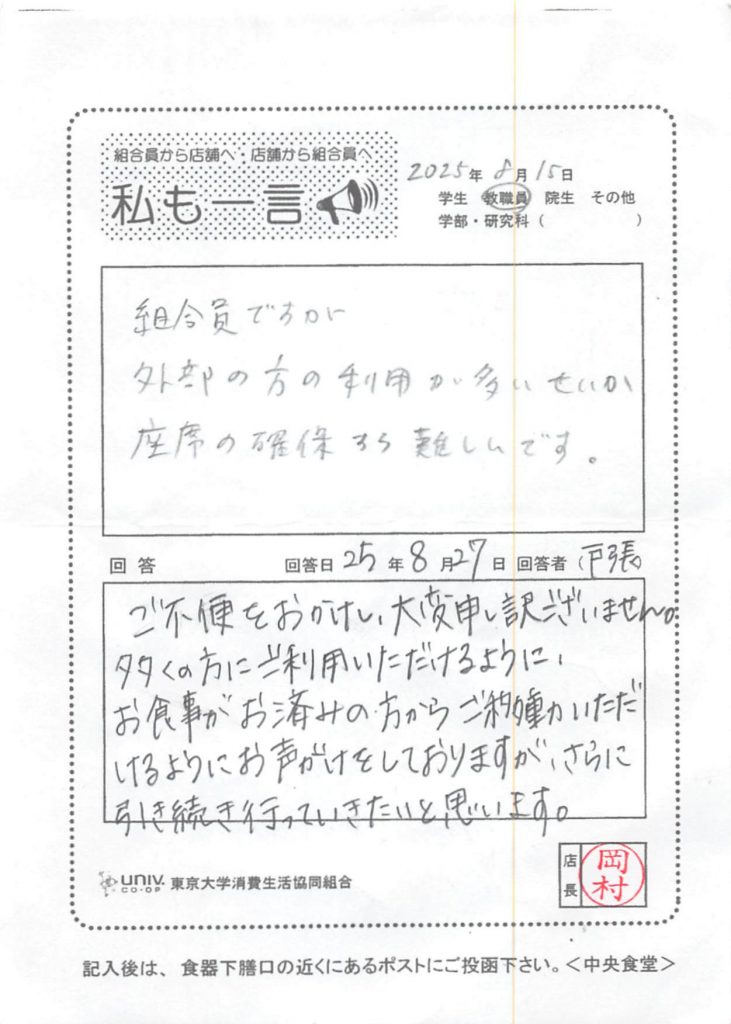 組合員から店舗へ・店舗から組合員へ
私も一言
2025年 8月 15日
学生 教職員 院生 その他
学部・研究科( )
組合員ですが
外部の方の利用が多いせいか
座席の確保すら難しいです。
回答 回答日 25年 8月 27日 回答者 戸張
ご不便をおかけし、大変申し訳ございません。
多くの方にご利用いただけるように、
お食事がお済みの方からご移動いただ
けるようにお声がけをしておりますが、さらに
引き続き行っていきたいと思います。
UNIV. CO-OP 東京大学消費生活協同組合
店長 岡村
記入後は、食器下膳口の近くにあるポストにご投函下さい。<中央食堂>